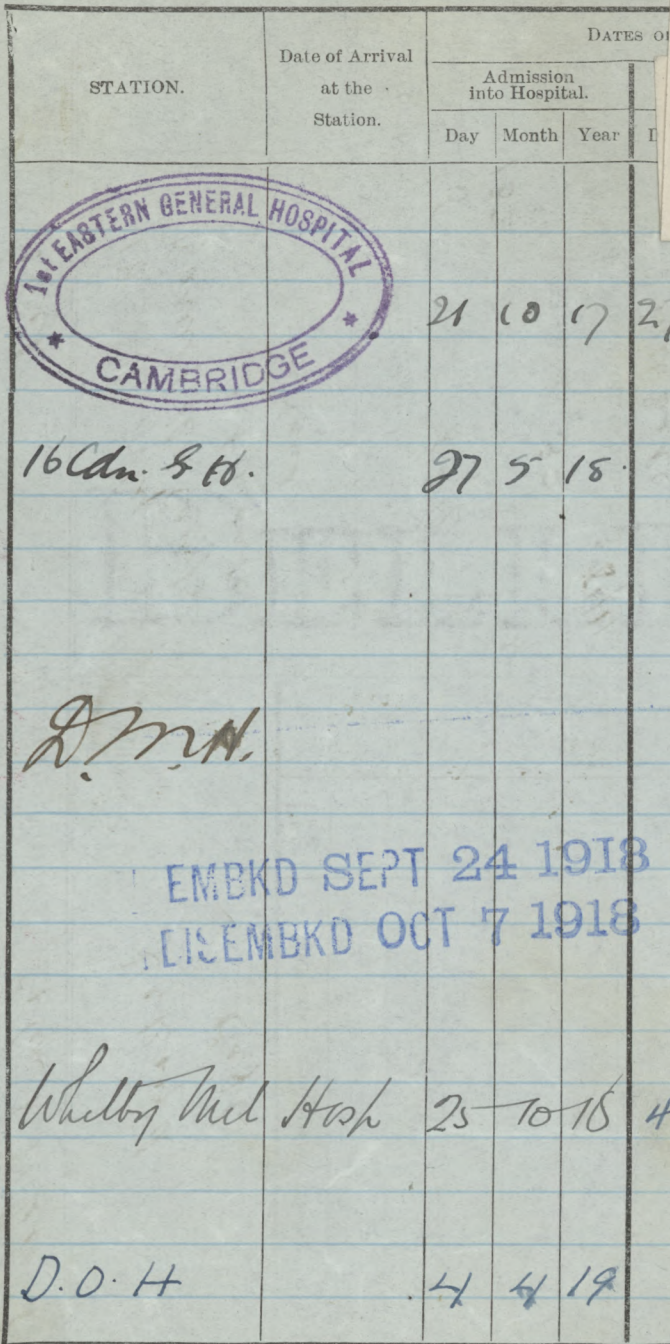 STATION.
Date of Arrival
at the
Station.
DATES
Admission
into Hospital.
Day Month Year
1st EASTERN GENERAL HOSPITAL
CAMBRIDGE
21 10 17 2
16 Cdn. G H. 27 5 18.
D.M.H.
EMBKD SEPT 24 1918
DISEMBKD OCT 7 1918
Whitby Mil Hosp 25 10 18 4
D.O.H 4 4 19